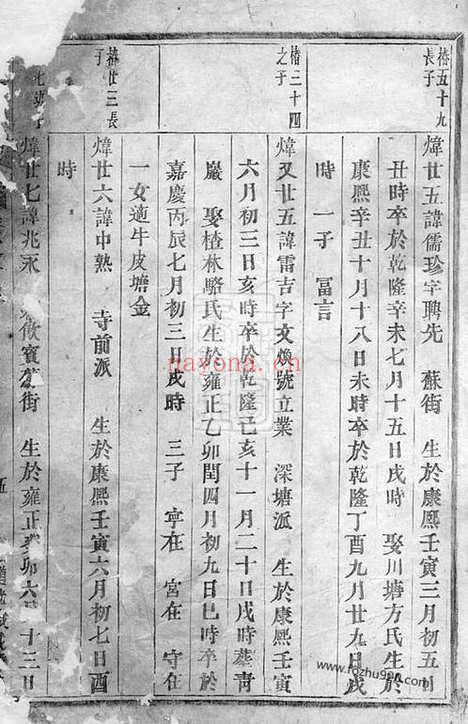 椿五十九
長子
煒廿五諱儒珍字聘先 蘇街 生於康熙壬寅三月初五日
丑時卒於乾隆辛未七月十五日戌時 娶川塘方氏生於
康熙辛丑十月十八日未時卒於乾隆丁酉九月廿九日戌
時 一子 冨言
椿三十四
之子
煒又廿五諱雷吉字文煥號立業 深塘派 生於康熙壬寅
六月初三日亥時卒於乾隆己亥十一月二十日戌時葬青
巖 娶楂林駱氏生於雍正乙卯閏四月初九日巳時卒於
嘉慶丙辰七月初三日戌時 三子 寧在 宮在 守在
一女適牛皮塘金
椿廿三長
子
煒廿六諱中熟 寺前派 生於康熙壬寅六月初七日酉
時
煒廿七諱兆永 賓蘇街 生於雍正癸卯六月十三日
nayona.cn
www.fozhu999.com